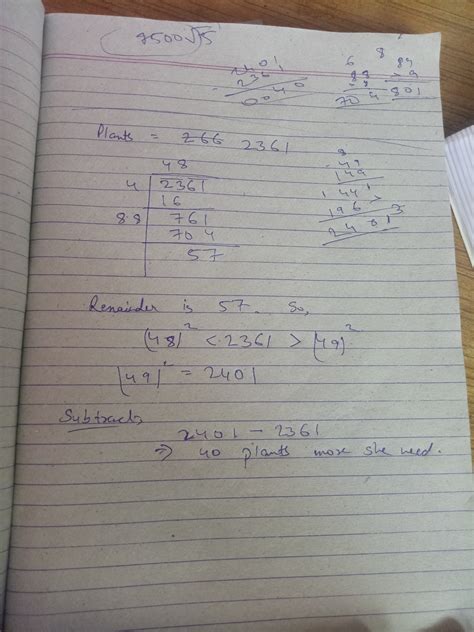 (7500√5)
2401
2361
0040
6 8 89
88 × 9
× 8 801
704
Plants = 266 2361
48
4 2361
16
8.8 761
704
57
8
49
149
1 441
196 ×
2401
Remainder is 57. So,
(48)² < 2361 > (49)²
(49)² = 2401
Subtract,
2401 - 2361
⇒ 40 plants more she need.